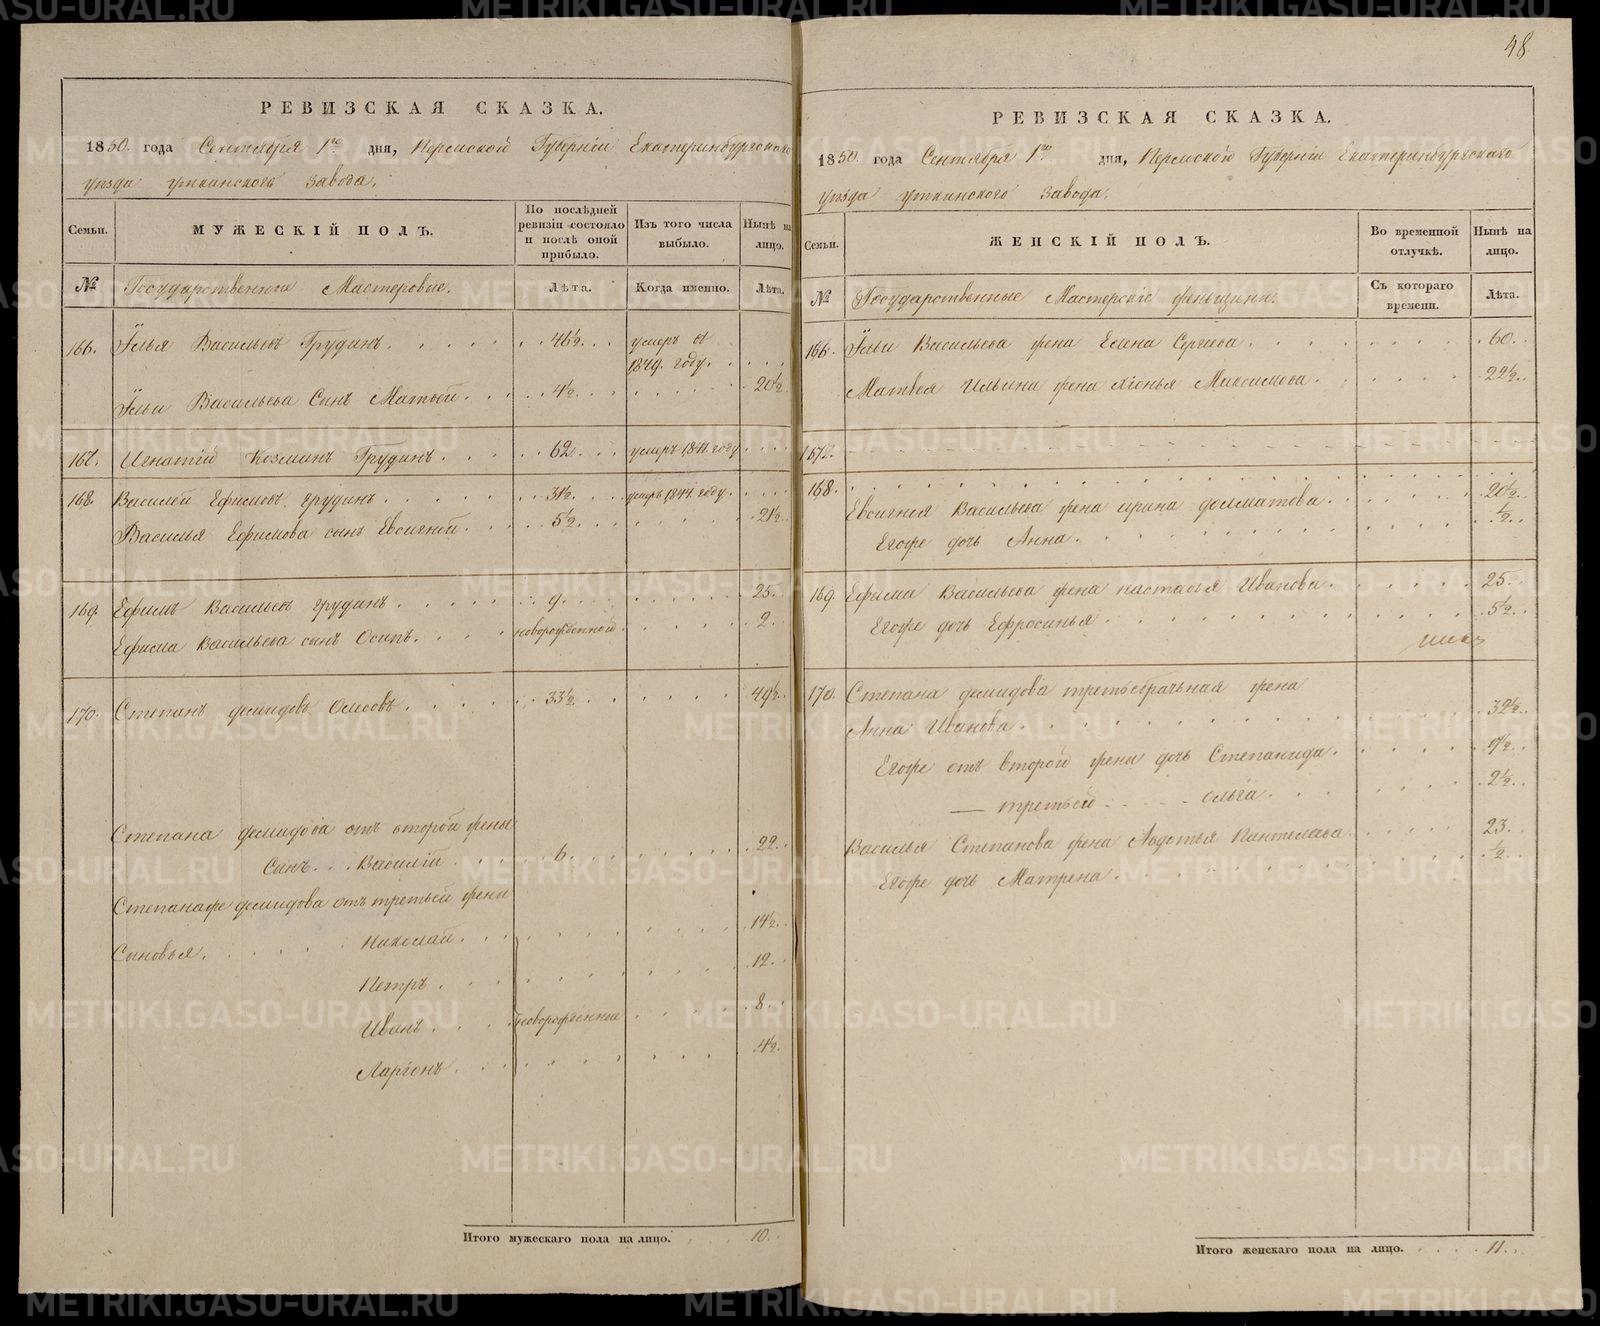 48
РЕВИЗСКАЯ СКАЗКА.
1850. года Сентября 1го дня, Пермской Губерніи Екатеринбургскаго
уѣзда уткинскаго завода.
Семьи.
МУЖЕСКІЙ ПОЛЪ.
По послѣдней ревизіи состояло и послѣ оной прибыло.
Изъ того числа выбыло.
Нынѣ на лицо.
№
Государственныя Мастеровыя.
Лѣта.
Когда именно.
Лѣта.
166. Илья Васильевъ Грудинъ. 46½. умеръ въ
1849. году.
Ильи Васильева Сынъ Матвей. 4½. 20½.
167. Игнатій Козминъ Грудинъ. 62. умеръ 1841. году
168. Василей Ефимовъ грудинъ 31½. умеръ 1844 году.
Василья Ефимова сынъ Евсигней. 5½. 21½.
169. Ефимъ Васильевъ грудинъ. 9. 25.
Ефима Васильева сынъ Осипъ. новорожденной. 2.
170. Степанъ демидовъ 33½. 49½.
Степана демидова отъ второй жены
Сынъ. Василій 6. 22.
Степанаже демидова отъ третьей жены
Сыновья. Николай. 14½.
Петръ. 12.
Иванъ. новорожденныя 8.
Ларіонъ. 4½.
Итого мужескаго пола на лицо. 10.
РЕВИЗСКАЯ СКАЗКА.
1850. года Сентября 1го дня, Пермской Губерніи Екатеринбургскаго
уѣзда уткинскаго завода.
Семьи.
ЖЕНСКІЙ ПОЛЪ.
Во временной отлучкѣ.
Нынѣ на лицо.
№
Государственные Мастерскіе женьщины.
Съ котораго времени.
Лѣта.
166. Ильи Васильева жена Елена Сергиева 60.
Матвея Ильина жена Хіонья Максимова. 22½.
167.
168.
Евсигнея Васильева жена ирина долматова. 20½.
Егоже дочь Анна. ½.
169 Ефима Васильева жена настасья Иванова. 25.
Егоже дочь Ефросинья. 5½.
170. Степана демидова третьебрачьная жена
Анна Иванова. 32½.
Егоже отъ второй жены дочь Степанида. 9½.
— третьей — Ольга. 2½.
Василья Степанова жена Авдотья Пантелѣева. 23.
Егоже дочь Матрена. ½.
Итого женскаго пола на лицо. 11.
METRIKI.GASO-URAL.RU